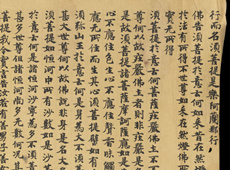 行而名須菩提是樂阿蘭那行
佛告須菩提於意云何如來昔在然燈
於法有所得不世尊如來在然燈佛所
實無所得
須菩提於意云何菩薩莊嚴佛土不
尊何以故莊嚴佛土者則非莊嚴是
是故須菩提諸菩薩摩訶薩應如是
心不應住色生心不應住聲香味觸
應無所住而生其心須菩提譬如有
須彌山王於意云何是身為大不須
甚大世尊何以故佛說非身是名大
須菩提如恒河中所有沙數如是沙
於意云何是諸恒河沙寧為多不須
甚多世尊但諸恒河尚多無數何況
菩提我今實言告汝若有善男子善